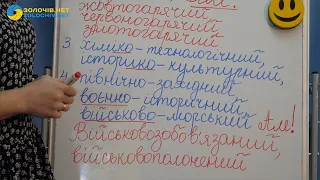 ЗОЛОЧІВ.НЕТ
ZOLOCHIV.NET
жовтогарячий,
червоногарячий,
золотогарячий
3. хіміко-технологічний,
історико-культурний,
4. північно-західний
воєнно-історичний
військово-морський Але!
Військовозобов'язаний,
військовополонений